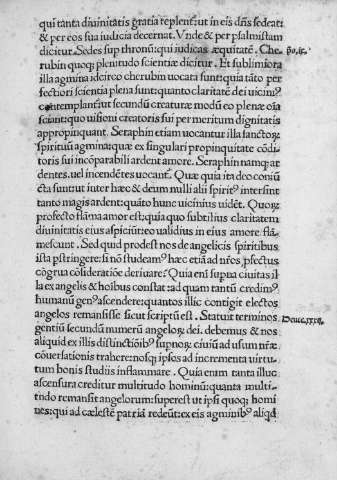 qui tanta diuinitatis gratia replent̃: ut in eis dñs sedeat:
& per eos sua iudicia decernat. Vnde & per psalmistam
dicitur. Sedes sup thronũ: qui iudicas æquitatẽ. Che
rubin quoq; plenitudo scientiæ dicitur. Et sublimiora
illa agmina idcirco cherubin uocata sunt: quia tãto per
fectiori scientia plena sunt: quanto claritatẽ dei uicini⁹
cõtemplant̃: ut secundũ creaturæ modũ eo plene oĩa
sciant: quo uisioni creatoris sui per meritum dignitatis
appropinquant. Seraphin etiam uocantur illa sanctoꝝ
spirituũ agmina: quæ ex singulari propinquitate cõdi
toris sui incõparabili ardent amore. Seraphin namq; ar
dentes. uel incendẽtes uocant̃. Quæ quia ita deo coniũ
cta sunt: ut inter hæc & deum nulli alii spirit⁹ intersint
tanto magis ardent: quãto hunc uicinius uidẽt. Quoꝝ
profecto flãma amor est: quia quo subtilius claritatem
diuinitatis eius aspiciũt: eo ualidius in eius amore flã⸗
mescunt. Sed quid prodest nos de angelicis spiritibus
ista pstringere: si nõ studeam⁹ hæc etiã ad nřos ꝓfectus
cõgrua cõsideratiõe deriuare? Quia eñi supna ciuitas il
la ex angelis & hoibus constat: ad quam tantũ credim⁹
humanũ gen⁹ ascendere: quantos illic contigit electos
angelos remansisse sicut scriptũ est. Statuit terminos
gentiũ secundum numerũ angeloꝝ dei. debemus & nos
aliquid ex illis distinctiõib⁹ supnoꝝ ciuiũ ad usum nřæ
cõuersationis trahere: nosq; ipsos ad incrementa uirtu
tum bonis studiis inflammare. Quia enim tanta illuc
ascensura creditur multitudo hominũ: quanta multi⸗
tudo remansit angelorum: superest ut ipsi quoq; homi
nes: qui ad cælestẽ patriã redeũt: ex eis agminib⁹ aliqd